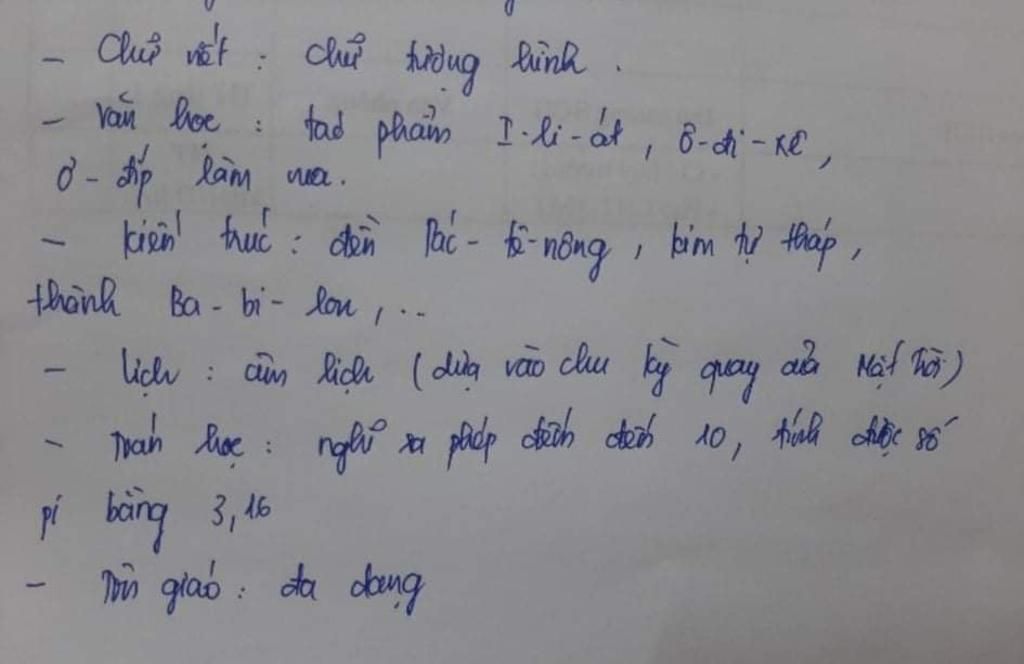 - Chữ viết : chữ tượng hình .
- Văn học : tác phẩm I-li-át , Ô-đi-xê ,
Ơ-đíp làm vua.
- kiến trúc : đền Pác-tê-nông , kim tự tháp ,
thành Ba-bi-lon , ..
- lịch : âm lịch ( dựa vào chu kỳ quay của Mặt Trời )
- Toán học : nghĩ ra phép đếm đến 10 , tính được số
pi bằng 3,16
- Tôn giáo : đa dạng